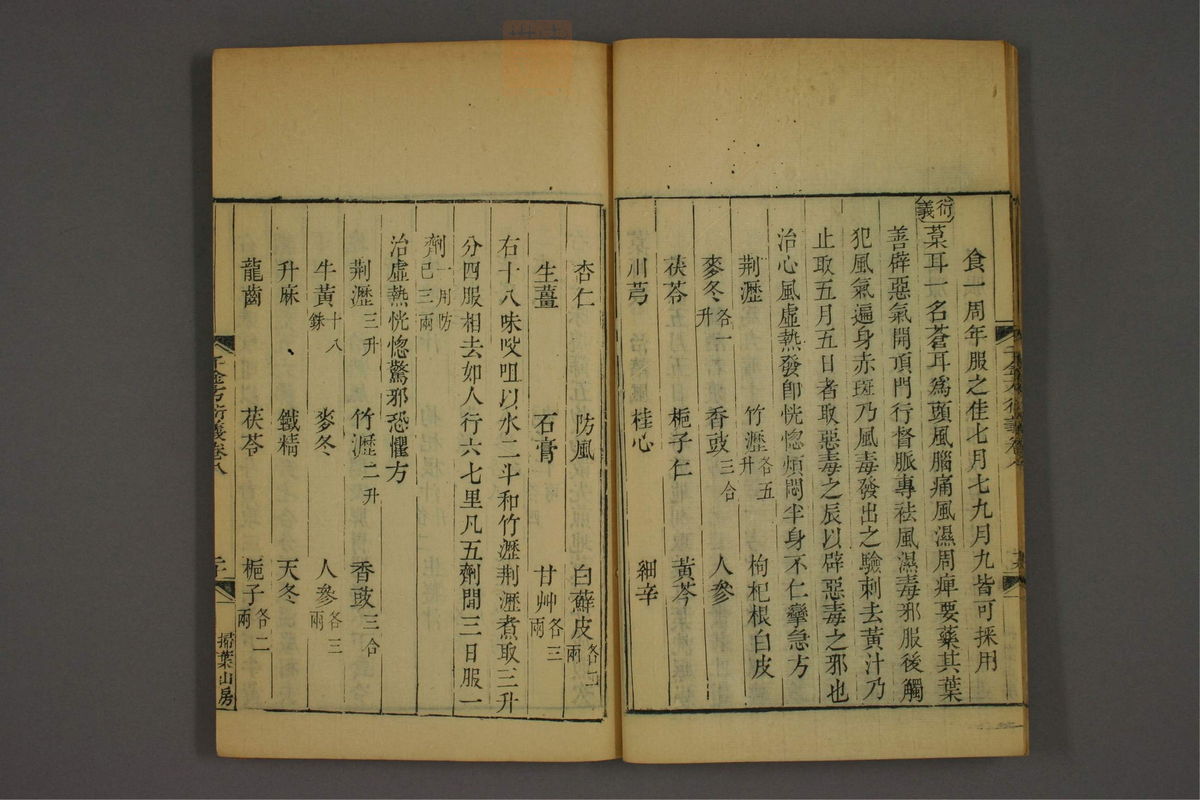 食一周年服之佳七月七九月九皆可採用
衍義
葈耳一名蒼耳爲頭風腦痛風濕周痺要藥其葉
善辟惡氣開頂門行督脈專祛風濕毒邪服後觸
犯風氣遍身赤斑乃風毒發出之驗刺去黃汁乃
止取五月五日者取惡毒之辰以辟惡毒之邪也
治心風虛熱發卽恍惚煩悶半身不仁攣急方
荆瀝 竹瀝各五升 枸杞根白皮
麥冬各一升 香豉三合 人參
茯苓 梔子仁 黃芩
川芎 桂心 細辛
杏仁 防風 白蘚皮各二兩
生薑 石膏 甘艸各三兩
右十八味㕮咀以水二斗和竹瀝荆瀝煮取三升
分四服相去如人行六七里凡五劑間三日服一
劑一用防己三兩
治虛熱恍惚驚邪恐懼方
荆瀝三升 竹瀝二升 香豉三合
牛黃十八銖 麥冬 人參各三兩
升麻 鐵精 天冬
龍齒 茯苓 梔子各二兩
千金方衍義卷八
掃葉山房